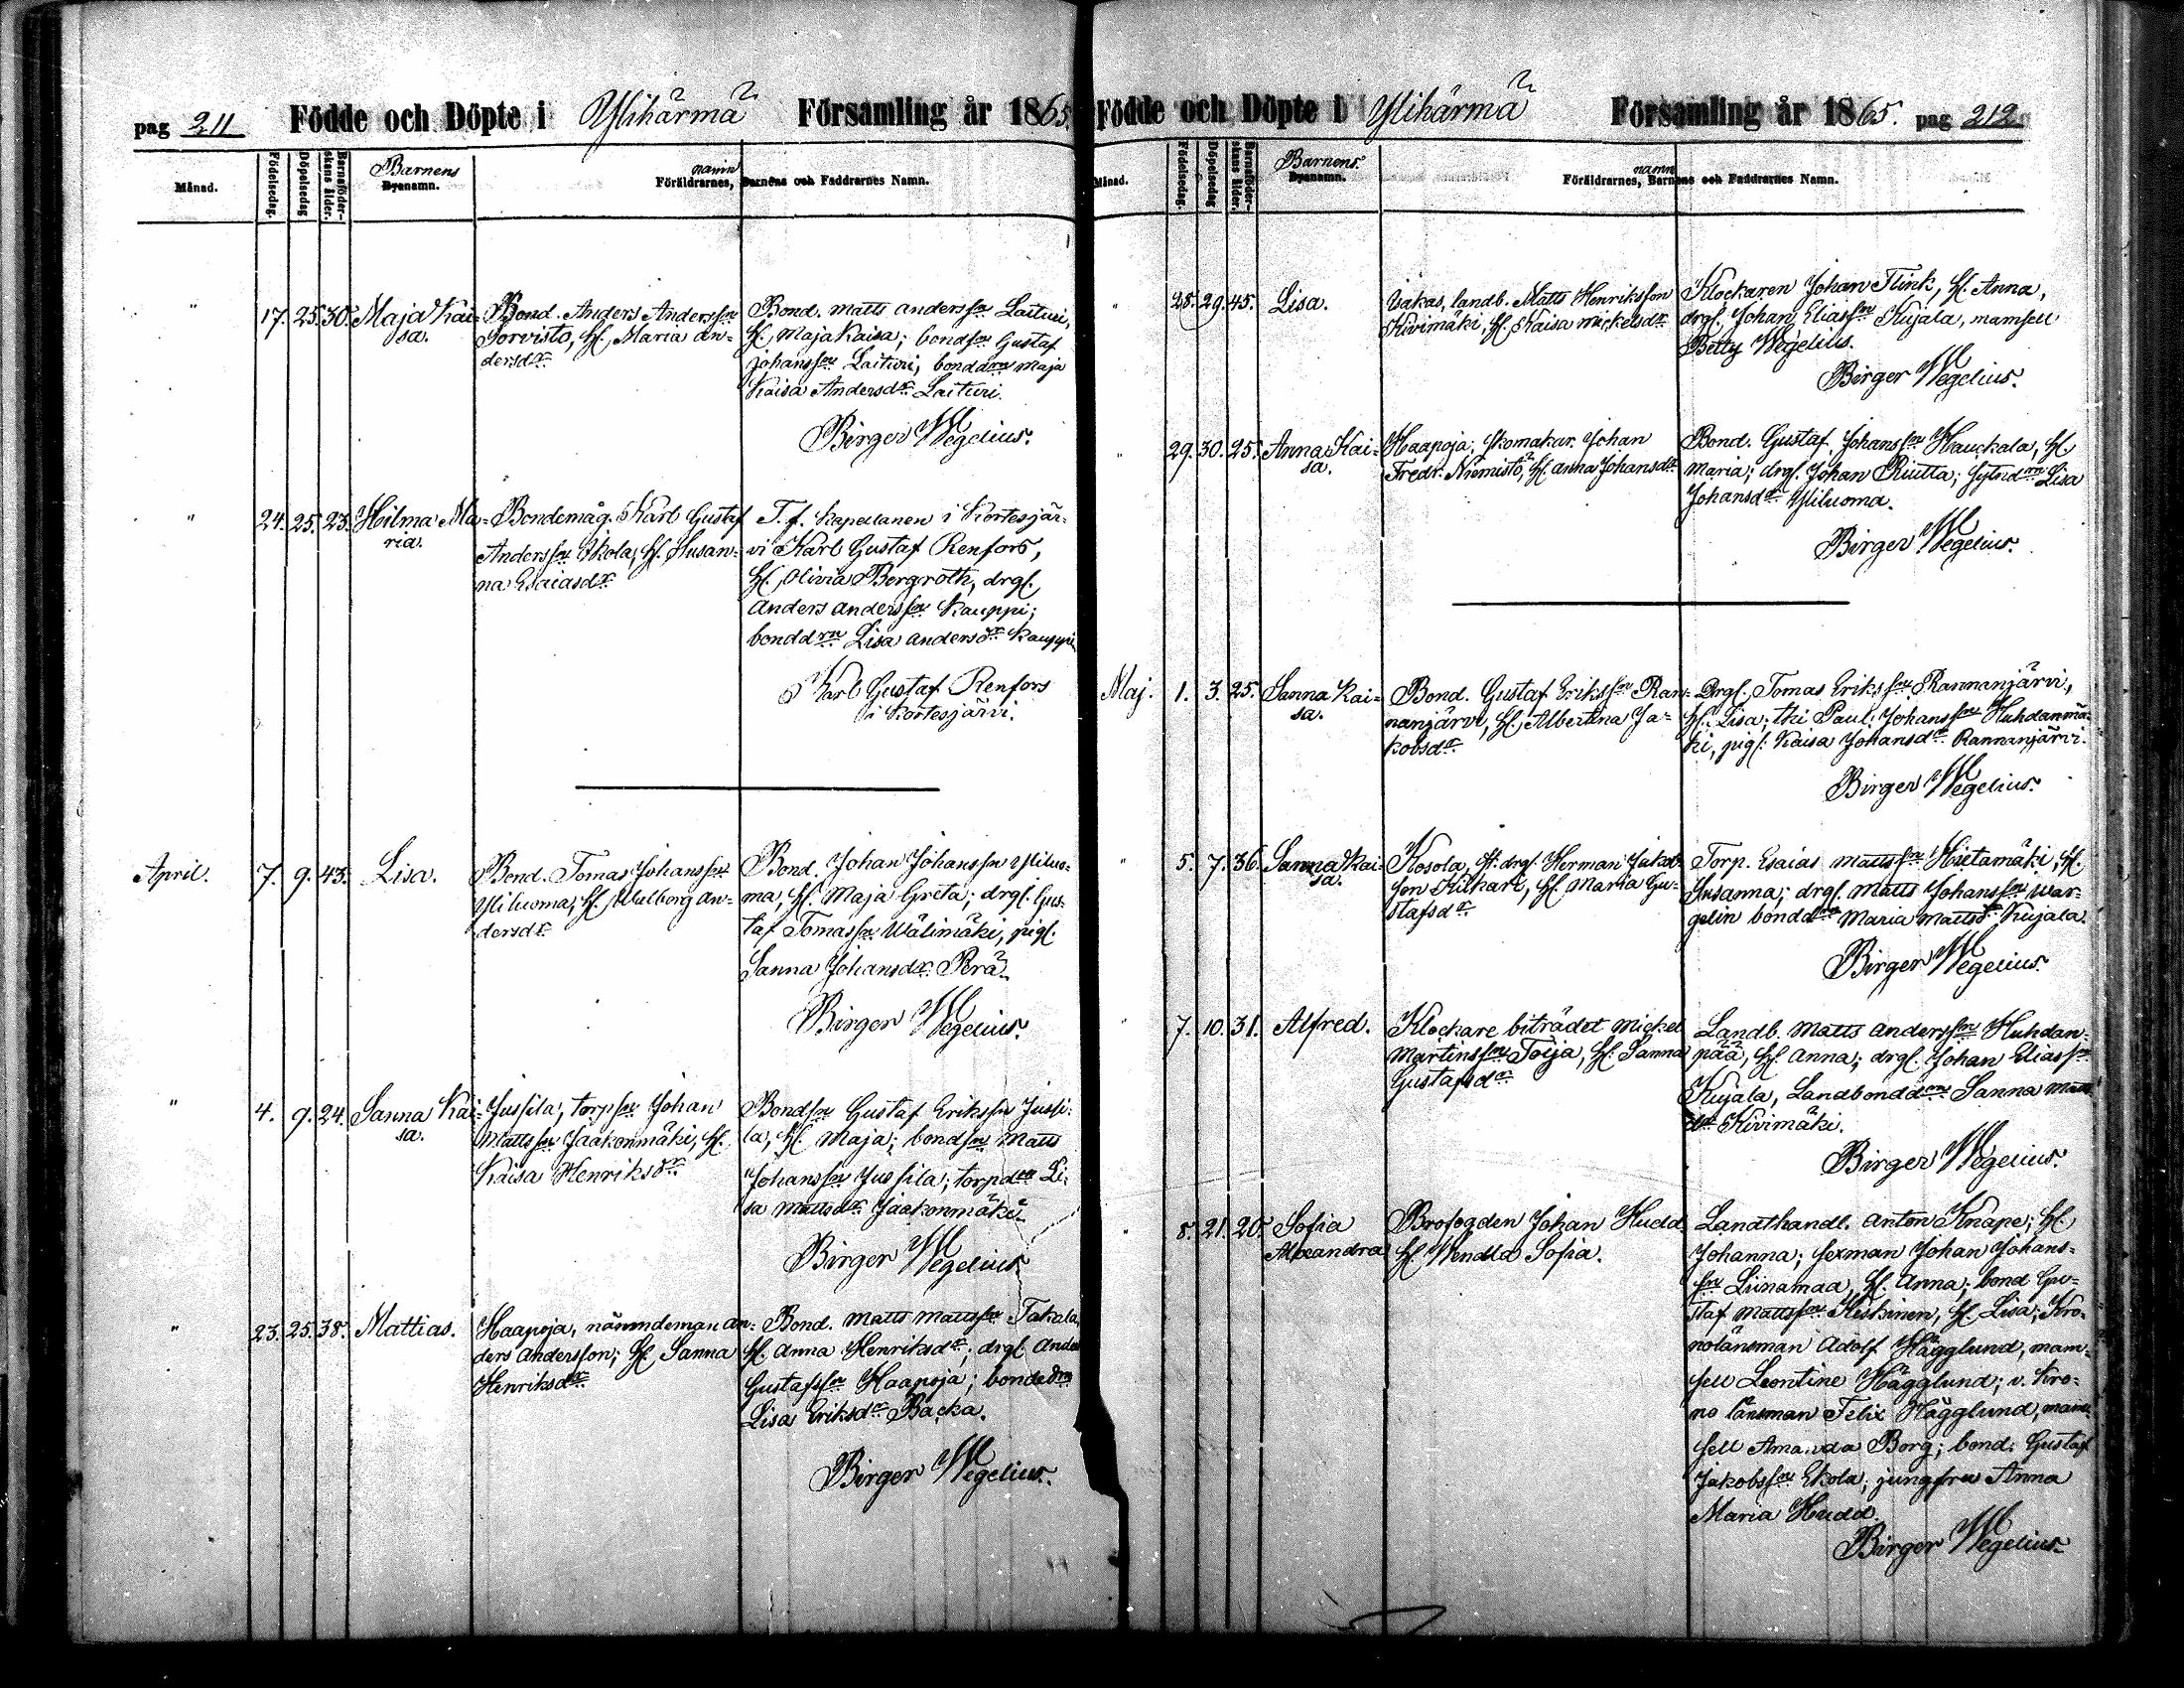 pag 211 Födde och Döpte i Ylihärmä Församling år 1865.
Månad. Födelsedag. Döpelsedag Barnaföderskans ålder. Barnens Byanamn. Föräldrarnes, namn Barnens och Faddrarnes Namn.
" 17. 25. 30. Maja Kai-
sa.
Bond. Anders Andersson
Porvisto, H. Maria An-
dersdr
Bond. Matts Andersson Laituri,
H. Maja Kaisa; bondson Gustaf
Johansson Laituri, bonddrn Maja
Kaisa Andersdr Laituri.
Birger Wegelius.
" 24. 25. 23. Hilma Ma-
ria.
Bondemåg. Karl Gustaf
Andersson Ekola, H. Susan-
na Esaiasdr
T. f. Kapellanen i Kortesjär-
vi Karl Gustaf Renfors,
H. Olivia Bergroth, drgl.
Anders Andersson Kauppi;
bonddrn Lisa Andersdr Kauppi
Karl Gustaf Renfors
i Kortesjärvi.
April. 7. 9. 43. Lisa.
Bond. Tomas Johansson
Yliluoma, H. Walborg An-
dersdr
Bond. Johan Johansson Yliluo-
ma, H. Maja Greta; drgl. Gus-
taf Tomasson Wälimäki, pigl.
Sanna Johansdr Perä.
Birger Wegelius.
" 4. 9. 24. Sanna Kai-
sa.
Jussila, torpson Johan
Mattsson Jaakonmäki, H.
Kaisa Henriksdr
Bondson Gustaf Eriksson Jussi-
la, H. Maja; bondson Matts
Johansson Jussila; torpdrn Li-
sa Mattsdr Jaakonmäki.
Birger Wegelius.
" 23. 25. 38. Mattias.
Haapoja, nämndeman An-
ders Andersson; H. Sanna
Henriksdr
Bond. Matts Mattsson Takala,
H. Anna Henriksdr; drgl. Anders
Gustafsson Haapoja; bondedrn
Lisa Eriksdr Backa.
Birger Wegelius.
Födde och Döpte i Ylihärmä Församling år 1865. pag 212
Månad. Födelsedag. Döpelsedag Barnaföderskans ålder. Barnens Byanamn. Föräldrarnes, namn Barnens och Faddrarnes Namn.
" 28. 29. 45. Lisa.
Isakas, landb. Matts Henriksson
Kivimäki, H. Kaisa Mickelsdr
Klockaren Johan Flink, H. Anna,
drgl. Johan Eliasson Kujala, mamsell
Betty Wegelius.
Birger Wegelius.
" 29. 30. 25. Anna Kai-
sa.
Haapoja, skomakar. Johan
Fredr. Niemistö, H. Anna Johansdr
Bond. Gustaf Johansson Hauckala, H.
Maria; drgl. Johan Riutta; sytndrn Lisa
Johansdr Yliluoma.
Birger Wegelius.
Maj. 1. 3. 25. Sanna Kai-
sa.
Bond. Gustaf Eriksson Ran-
nanjärvi, H. Albertina Ja-
kobsdr
Drgl. Tomas Eriksson Rannanjärvi,
H. Lisa; thi Paul Johansson Huhdanmä-
ki, pigl. Kaisa Johansdr Rannanjärvi.
Birger Wegelius.
" 5. 7. 36. Sanna Kai-
sa.
Kosola, ff. drgl. Herman Jakobs-
son Kilkari, H. Maria Gu-
stafsdr
Torp. Esaias Mattsson Hietamäki, H.
Susanna; drgl. Matts Johansson War-
gelin bonddrn Maria Mattsdr Kujala.
Birger Wegelius.
" 7. 10. 31. Alfred.
Klockare biträdet Mickel
Martinsson Toija, H. Sanna
Gustafsdr
Landb. Matts Andersson Huhdan-
pää, H. Anna; drgl. Johan Eliasson
Kujala, Landbonddrn Sanna Matts
dr Kivimäki.
Birger Wegelius.
" 8. 21. 20. Sofia
Alexandra
Brofogden Johan Hudd
H. Wendla Sofia.
Landthandl. Anton Knape, H.
Johanna; sexman Johan Johans-
son Liinamaa, H. Anna; bond Gu-
staf Mattsson Heskinen, H. Lisa; Kro-
nolänsman Adolf Hägglund, mam-
sell Leontine Hägglund; v. Kro-
no länsman Felix Hägglund, mam-
sell Amanda Borg; bond. Gustaf
Jakobsson Ekola; jungfru Anna
Maria Hudd.
Birger Wegelius.